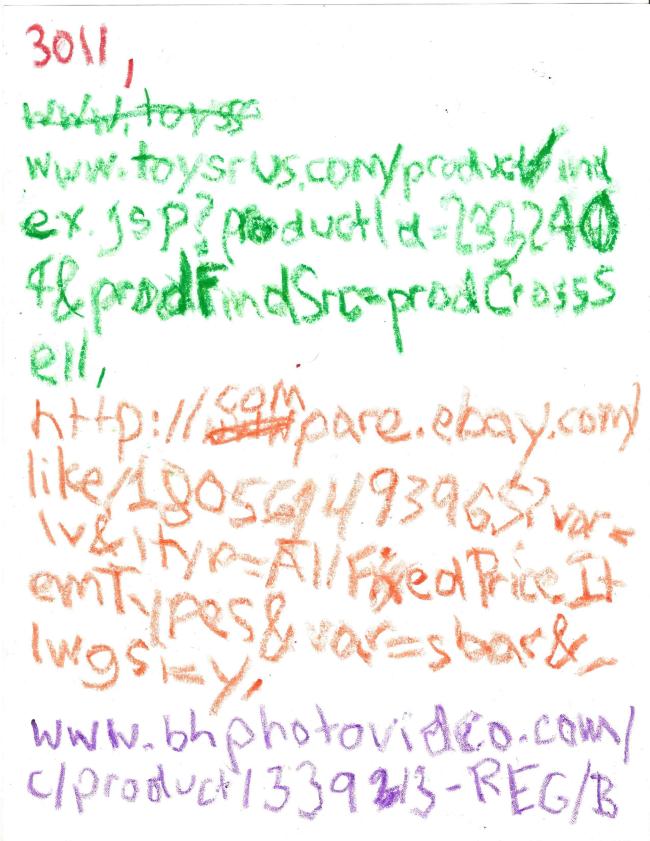 3011,
www.toyss
www.toysrus.com/product/ind
ex.jsp?productId=2332240
4&prodFindSrc=prodCrossS
ell,
http://compare.ebay.com/
like/180569493965?var=
lv&ltyp=AllFixedPriceIt
emTypes&var=sbar&_
lwgsi=y,
www.bhphotovideo.com/
c/product/1339
-REG/B